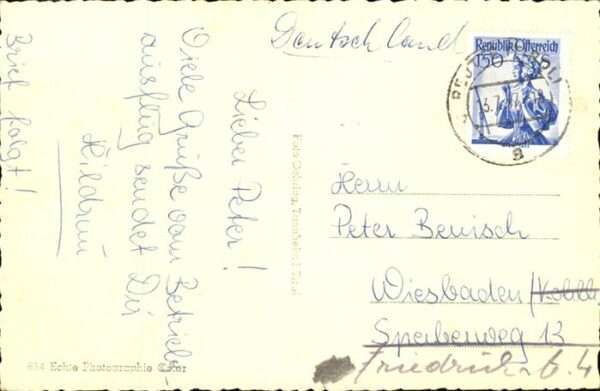 Deutschland
Republik Österreich
150
Lieber Peter!
Viele Grüße vom Betriebs-
ausflug sendet Dir
Hildrun
Brief folgt!
Herrn
Peter Benisch
Wiesbaden
Speiberweg 13
Friedrich
Echte Photographie